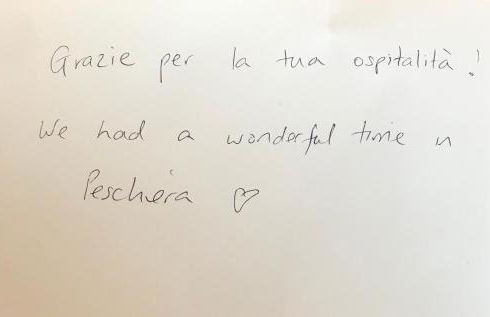 Grazie per la tua ospitalità!
We had a wonderful time in
Peschiera ♡